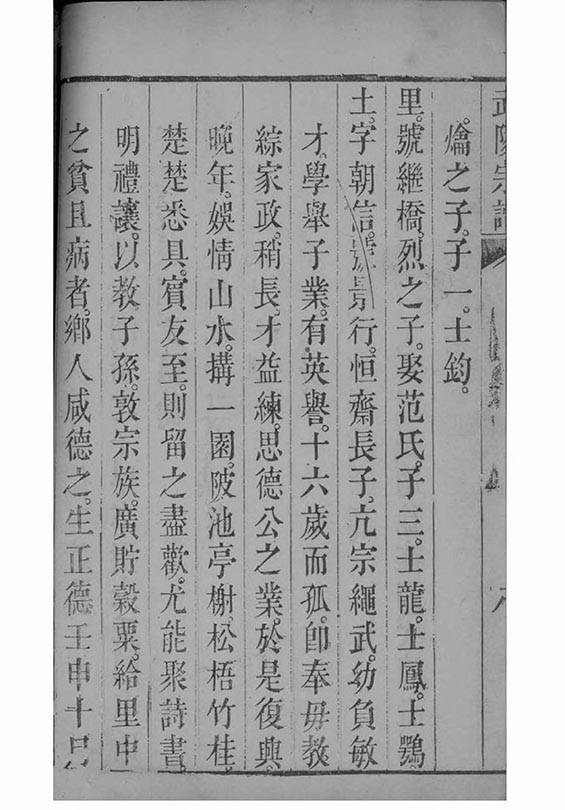 武陵宗譜
爚之子。子一。士鈞。
里。號繼橋。烈之子。娶范氏。子三。士龍。士鳳。士鶚。
士。字朝信。號景行。恒齋長子。亢宗繩武。幼負敏
才。學舉子業。有英譽。十六歲而孤。卽奉毋敎
綜家政。稍長。才益練。思德公之業。於是復興。
晚年。娛情山水。搆一園。陂池亭榭。松梧竹桂。
楚楚悉具。賓友至。則留之盡歡。尤能聚詩書。
明禮讓。以敎子孫。敦宗族。廣貯穀粟。給里中
之貧且病者。鄉人咸德之。生正德壬申十月